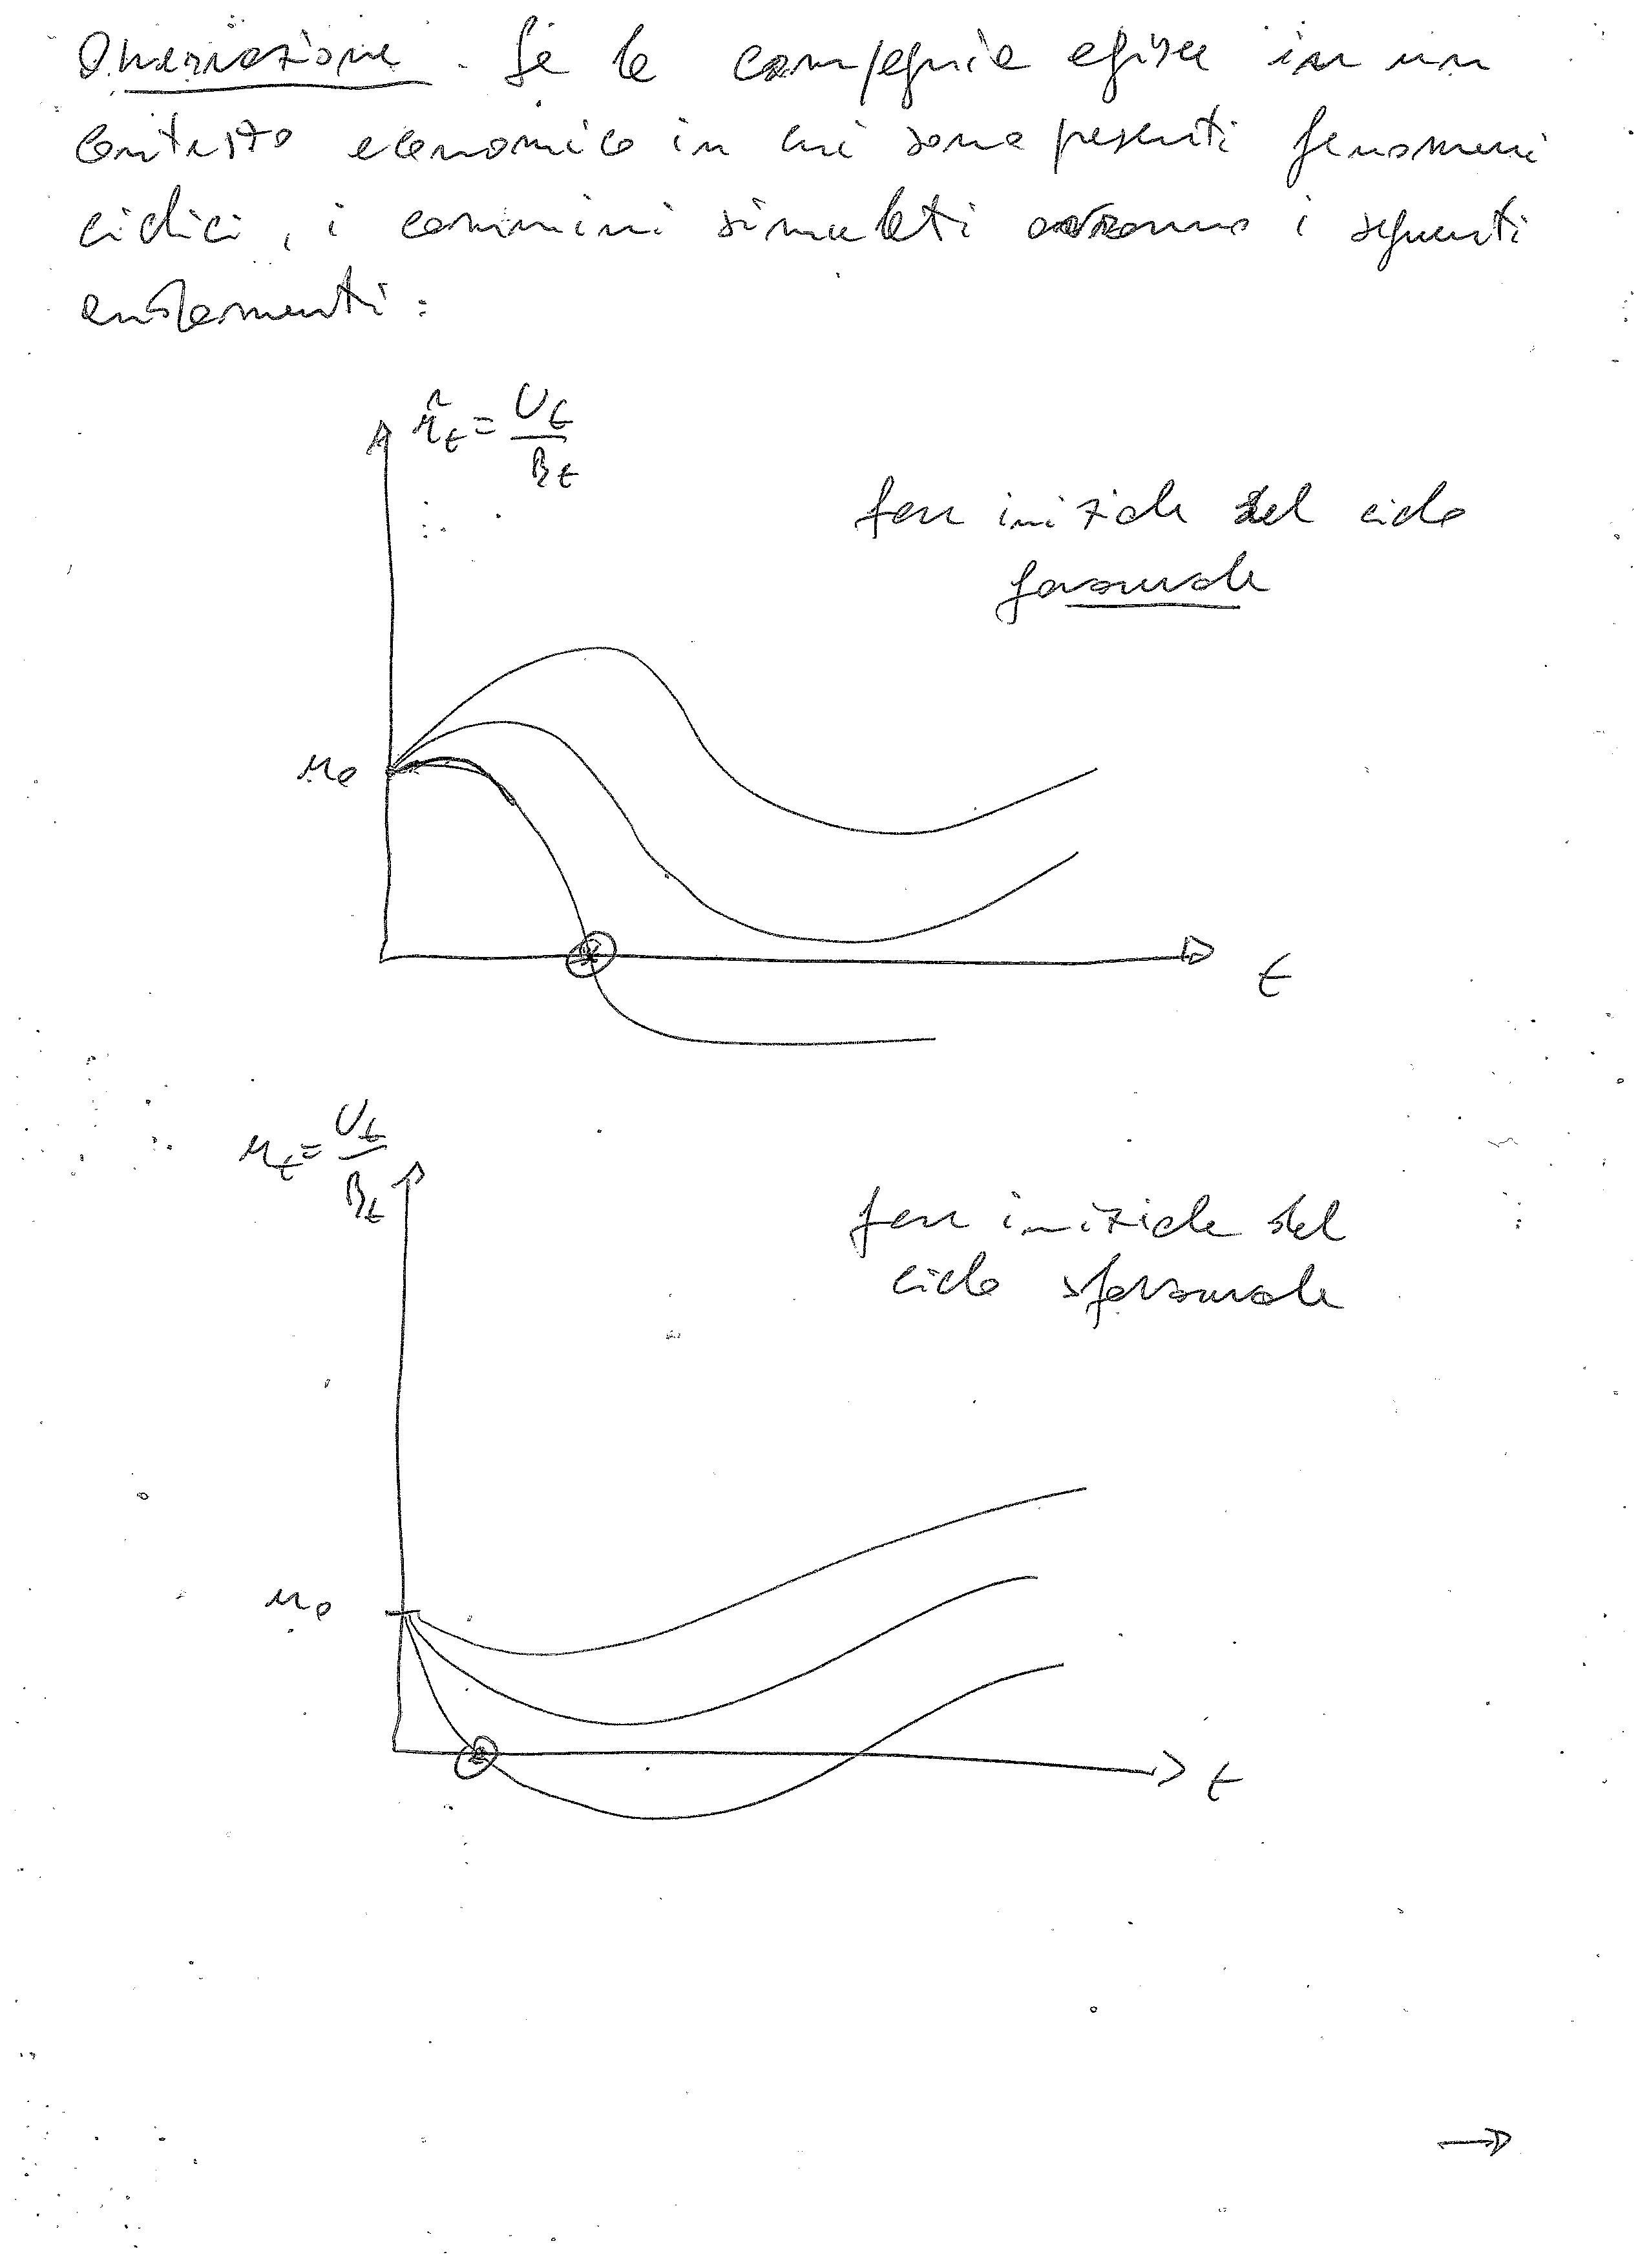 Osservazione. Se la compagnia agisce in un
contesto economico in cui sono presenti fenomeni
ciclici, i cammini simulati avranno i seguenti
andamenti:
ũ_t = U_t / B_t
fase iniziale del ciclo
favorevole
u_0
t
u_t = U_t / B_t
fase iniziale del
ciclo sfavorevole
u_0
t
→